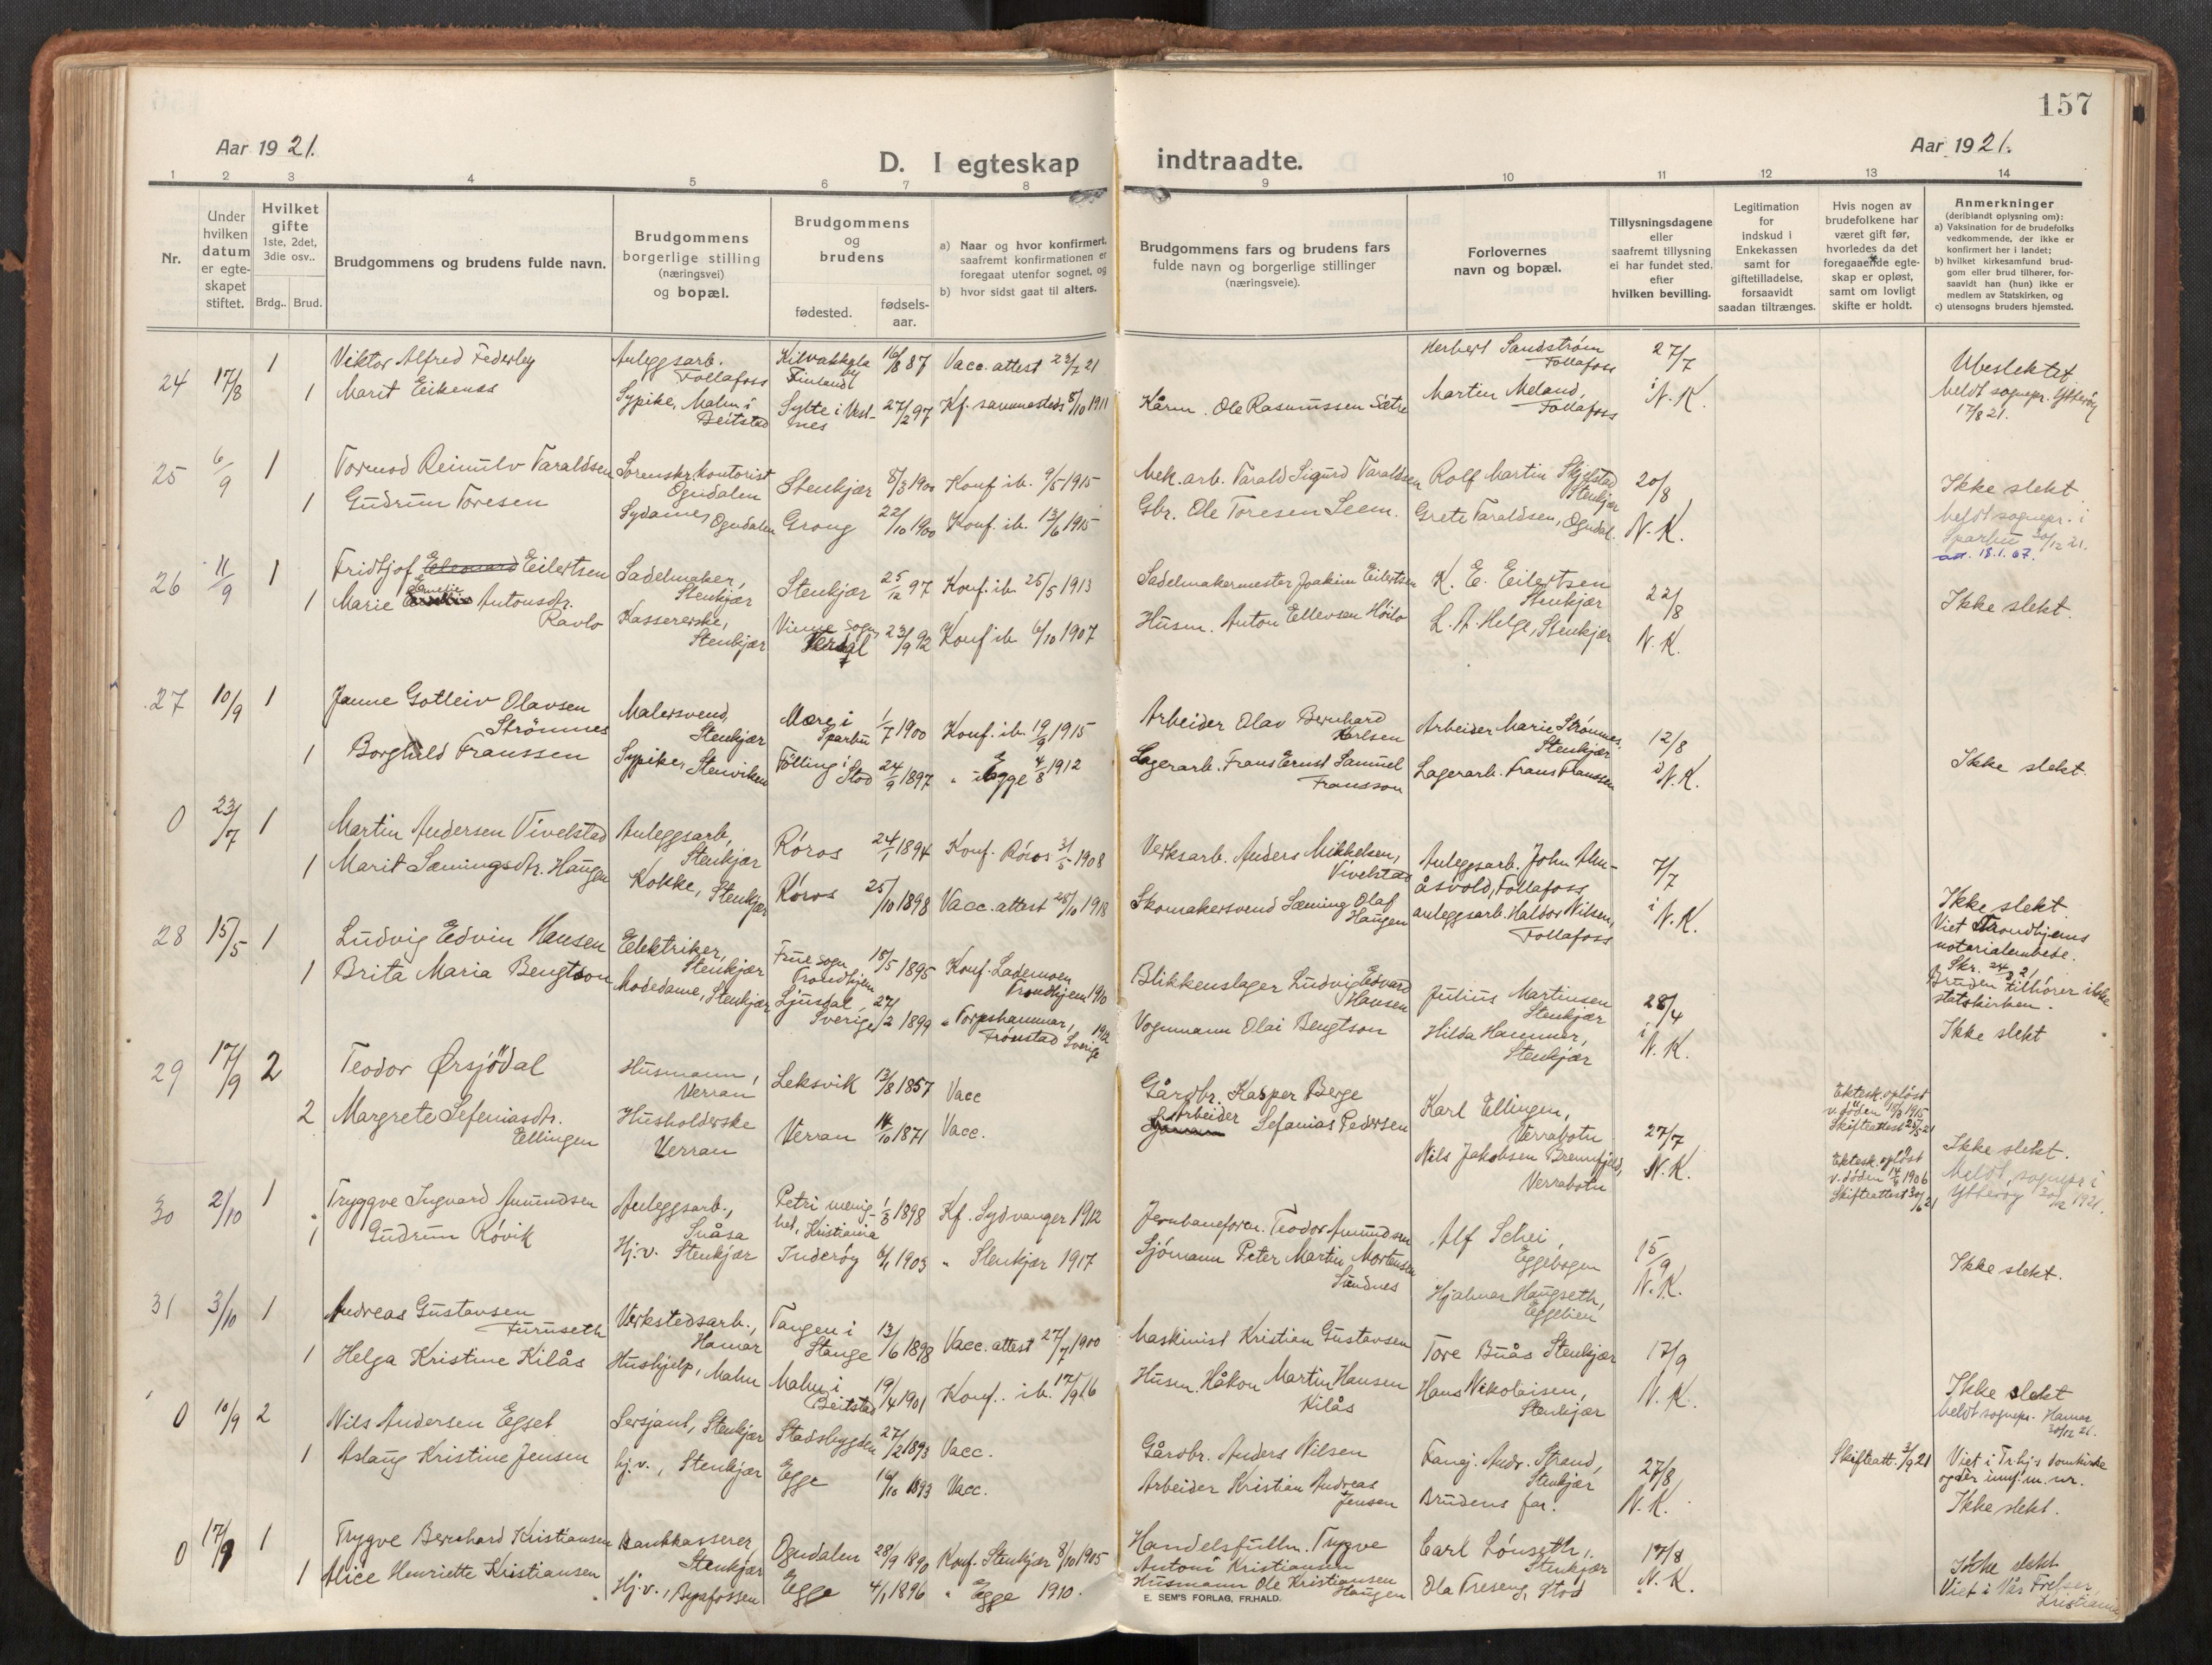 157
Aar 1921.
D. I egteskap
indtraadte.
Aar 1921.
1 2 3 4 5 6 7 8 9 10 11 12 13 14
Nr.
Under hvilken datum er egteskapet stiftet.
Hvilket gifte 1ste, 2det, 3die osv..
Brdg.. Brud.
Brudgommens og brudens fulde navn.
Brudgommens borgerlige stilling (næringsvei) og bopæl.
Brudgommens og brudens
fødested.
fødsels-aar.
a) Naar og hvor konfirmert, saafremt konfirmationen er foregaat utenfor sognet, og
b) hvor sidst gaat til alters.
Brudgommens fars og brudens fars fulde navn og borgerlige stillinger (næringsveie).
Forlovernes navn og bopæl.
Tillysningsdagene eller saafremt tillysning ei har fundet sted. efter hvilken bevilling.
Legitimation for indskud i Enkekassen samt for giftetilladelse, forsaavidt saadan tiltrænges.
Hvis nogen av brudefolkene har været gift før, hvorledes da det foregaaende egteskap er opløst, samt om lovligt skifte er holdt.
Anmerkninger (deriblandt oplysning om):
a) Vaksination for de brudefolks vedkommende, der ikke er konfirmert her i landet;
b) hvilket kirkesamfund brudgom eller brud tilhører, forsaavidt han (hun) ikke er medlem av Statskirken, og
c) utensogns bruders hjemsted.
24 17/8 1 Viktor Alfred Federley Anleggsarb. Follafoss Finland 16/8 87 Vacc. attest 22/7 21 Herbert Sandström Follafoss 27/7 Ubeslektet
1 Marit Eikenes Sypike, Malm i Beitstad Sylte i Vestnes 27/2 97 Kf. sammesteds 8/10 1911 Kårm. Ole Rasmussen Sætre Martin Meland, Follafoss i N.K. Meldt sognepr. Ytterøy 17/8 21.
25 6/9 1 Tormod Reinulv Taraldsen Sorenskr. kontorist Ogndalen Stenkjær 8/3 1900 Konf ib. 9/5 1915 Mek. arb. Tarald Sigurd Taraldsen Rolf Martin Skjelstad Stenkjær 20/8 Ikke slekt.
1 Gudrun Toresen Sydame, Ogndalen Grong 22/10 1900 Konf. ib. 13/6 1915 Gbr. Ole Toresen Seem. Grete Taraldsen, Ogndal. N.K. Meldt sognepr. i Sparbu 20/12 21.
18.1.67.
26 11/9 1 Fridtjof Eilertsen Sadelmaker, Stenkjær Stenkjær 25/12 97 Konf. ib. 25/5 1913 Sadelmakermester Joakim Eilertsen K. E. Eilertsen Stenkjær 22/8 Ikke slekt.
1 Marie Antonsdtr. Ravlo Kassererske, Stenkjær Vinne sogn Verdal 23/9 92 Konf ib 6/10 1907 Husm. Anton Ellevsen Høilo L. A. Helge, Stenkjær N.K.
27 10/9 1 Janne Gotleiv Olavsen Strömnes Malersvend, Stenkjær Mære i Sparbu 1/7 1900 Konf. ib. 19/9 1915 Arbeider Olav Bernhard Karlsen Arbeider Marie Strømnes, Stenkjær 12/8
1 Borghild Franssen Sypike, Stenviken Følling i Stod 24/9 1897 " i Egge 4/8 1912 Lagerarb. Frans Ernst Samuel Fransson Lagerarb. Frans Franssen i N.K. Ikke slekt.
0 23/7 1 Martin Andersen Vivelstad Anleggsarb, Stenkjær Röros 24/1 1894 Konf. Röros 31/5 1908 Verksarb. Anders Mikkelsen, Vivelstad Anleggsarb. John Alm-åsvold, Follafoss 7/7
1 Marit Sæmingsdtr. Haugen Kokke, Stenkjær Röros 25/10 1898 Vacc. attest 28/10 1918 Skomakersvend Sæming Olaf Haugen anleggsarb. Haldor Nilsen, Follafoss i N.K. Ikke slekt.
28 15/5 1 Ludvig Edvin Hansen Elektriker, Stenkjær Frue sogn Trondhjem 18/5 1895 Konf. Lademoen Trondhjem 1910 Blikkenslager Ludvig Edvard Hansen Julius Martinsen Stenkjær 28/4 Viet Trondhjems notarialembede.
1 Brita Maria Bengtson Modedame, Stenkjær Ljusdal, Sverige 27/2 1899 " Torpshammar, Sverige 1912 Vognmann Olai Bengtson Hilda Hammer, Stenkjær i N.K. Bruden tilhører ikke statskirken. Ikke slekt
29 17/9 2 Teodor Ørsjødal Husmann, Verran Leksvik 13/8 1857 Vacc Gårdbr. Kasper Berge Karl Ellingen, Verrabotn 27/7 Ektesk. opløst v. døden 1915 Skifteattest
2 Margrete Sefaniasdtr. Ellingen Husholderske Verran Verran 14/10 1871 Vacc. Arbeider Sefanias Pedersen Nils Jakobsen Brennfjeld, Verrabotn N.K. Ektesk. opløst v. døden 1906 Skifteattest 30/6 21 Ikke slekt. Meldt sognepr i Ytterøy 20/12 1921.
30 2/10 1 Tryggve Ingvard Amundsen Anleggsarb., Snåsa Petri menighet, Kristiania 1/3 1898 Kf. Sydvanger 1912 Jernbaneform. Teodor Amundsen Alf Schei, Eggebogen 15/9
1 Gudrun Rövik Hj.v. Stenkjær Inderöy 6/1 1903 " Stenkjær 1917 Sjömann Peter Martin Mortensen Sundnes Hjalmar Haugseth, Eggelien N.K. Ikke slekt.
31 3/10 1 Andreas Gustavsen Furuseth Verkstedsarb., Hamar Tangen i Stange 13/6 1898 Vacc. attest 27/7 1900 Maskinist Kristian Gustavsen Tore Buås Stenkjær 17/9
1 Helga Kristine Kilås Hushjelp, Malm Malm i Beitstad 19/4 1901 Konf. ib. 17/9 16 Husm. Håkon Martin Hansen Kilås Hans Nikolaisen, Stenkjær N.K. Ikke slekt Meldt sognepr. Hamar 20/12 21.
0 10/9 2 Nils Andersen Egset Sersjant, Stenkjær Stadsbygden 27/2 1893 Vacc. Gårdbr. Anders Nilsen Fanej. Andr. Strand, Stenkjær 27/8 Skifteatt. 3/9 21 Viet i Tr.hj.s domkirke og der innf. m. nr.
1 Aslaug Kristine Jensen hj.v., Stenkjær Egge 16/10 1893 Vacc. Arbeider Kristian Andreas Jensen Brudens far. N.K. Ikke slekt.
0 17/9 1 Trygve Bernhard Kristiansen Bankkasserer, Stenkjær Ogndalen 28/9 1890 Konf. Stenkjær 8/10 1905 Handelsfullm. Trygve Antoni Kristiansen Carl Lönseth, Stenkjær 17/8 Ikke slekt
1 Alice Henriette Kristiansen Hj.v., Byafossen Egge 4/1 1896 " Egge 1910. Husmann Ole Kristiansen Haugen Ola Tresen, Stod N.K. Viet i Vår Frelser Kristiania
E. SEM'S FORLAG, FR.HALD.